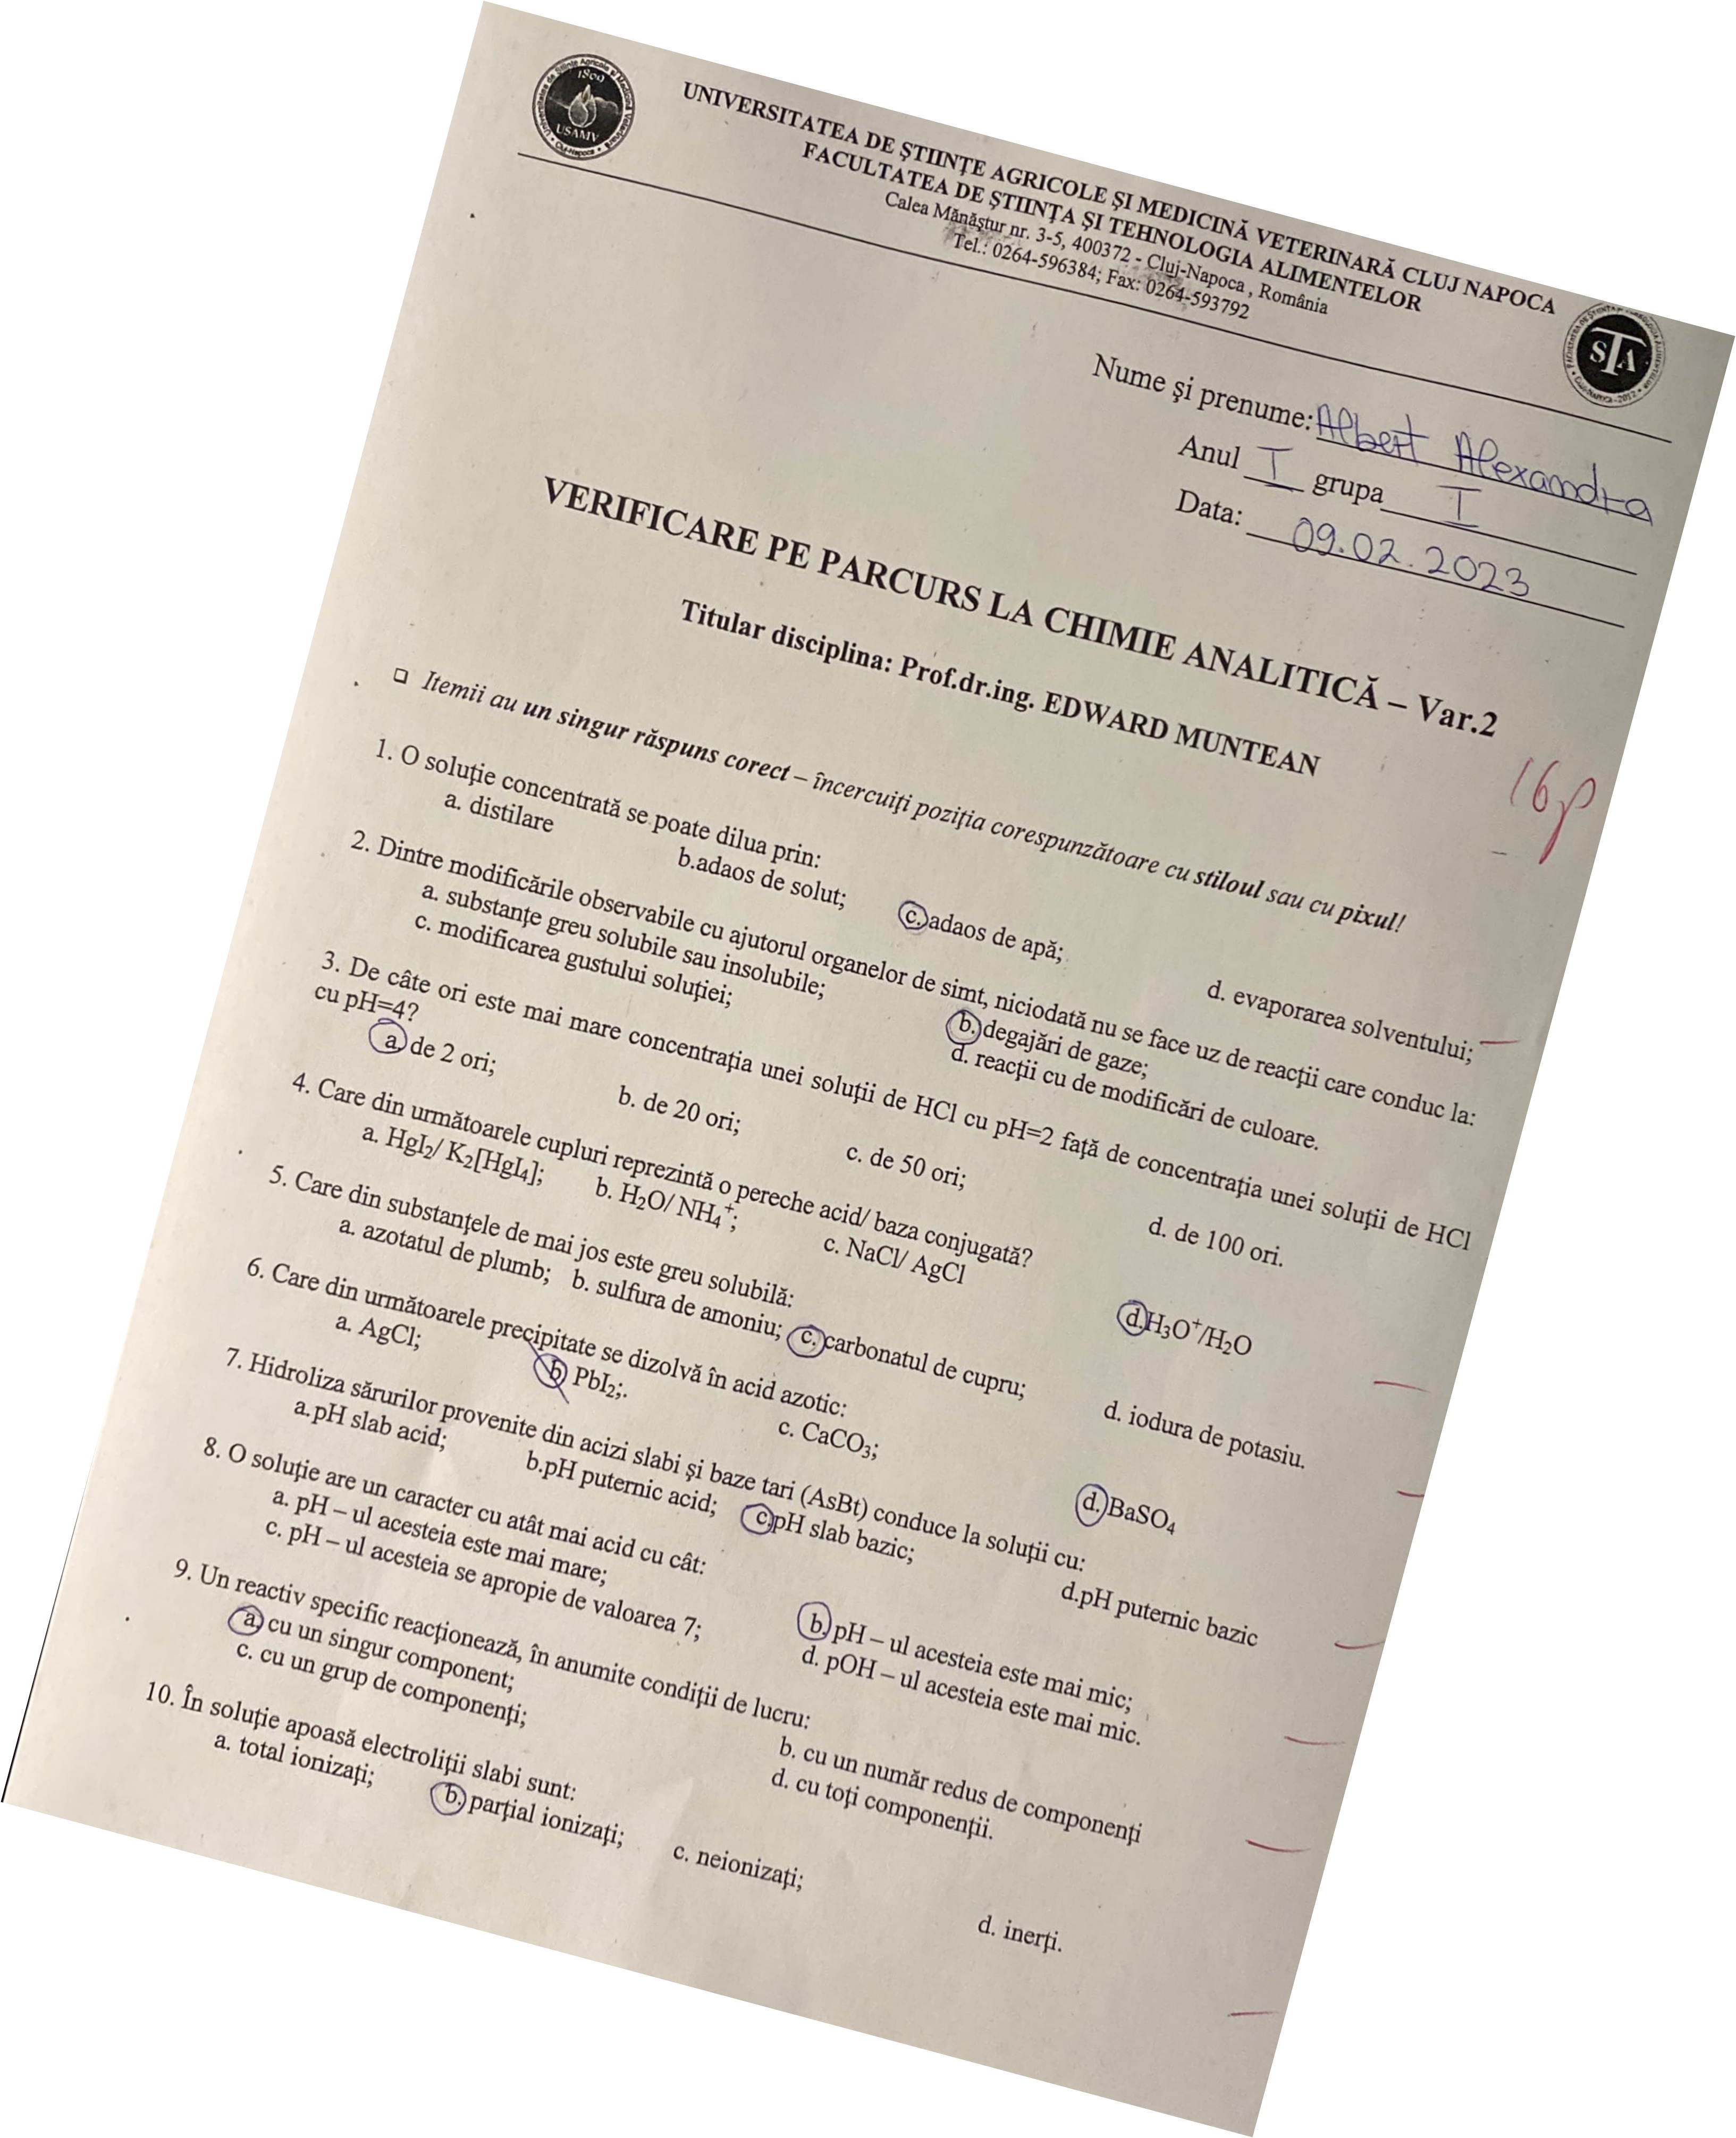 UNIVERSITATEA DE ŞTIINŢE AGRICOLE ŞI MEDICINĂ VETERINARĂ CLUJ NAPOCA
FACULTATEA DE ŞTIINŢA ŞI TEHNOLOGIA ALIMENTELOR
Calea Mănăştur nr. 3-5, 400372 - Cluj-Napoca , România
Tel.: 0264-596384; Fax: 0264-593792
1869
USAMV
Cluj-Napoca
STA
Cluj-Napoca - 2012
Nume şi prenume: Albert Alexandra
Anul I grupa I
Data: 09.02.2023
VERIFICARE PE PARCURS LA CHIMIE ANALITICĂ – Var.2
Titular disciplina: Prof.dr.ing. EDWARD MUNTEAN
16p
❑ Itemii au un singur răspuns corect – încercuiţi poziţia corespunzătoare cu stiloul sau cu pixul!
1. O soluţie concentrată se poate dilua prin:
a. distilare b.adaos de solut; c. adaos de apă; d. evaporarea solventului;
2. Dintre modificările observabile cu ajutorul organelor de simt, niciodată nu se face uz de reacţii care conduc la:
a. substanţe greu solubile sau insolubile; b. degajări de gaze;
c. modificarea gustului soluţiei; d. reacţii cu de modificări de culoare.
3. De câte ori este mai mare concentraţia unei soluţii de HCl cu pH=2 faţă de concentraţia unei soluţii de HCl
cu pH=4?
a. de 2 ori; b. de 20 ori; c. de 50 ori; d. de 100 ori.
4. Care din următoarele cupluri reprezintă o pereche acid/ baza conjugată?
a. HgI₂/ K₂[HgI₄]; b. H₂O/ NH₄⁺; c. NaCl/ AgCl d. H₃O⁺/H₂O
5. Care din substanţele de mai jos este greu solubilă:
a. azotatul de plumb; b. sulfura de amoniu; c. carbonatul de cupru; d. iodura de potasiu.
6. Care din următoarele precipitate se dizolvă în acid azotic:
a. AgCl; b) PbI₂;. c. CaCO₃; d. BaSO₄
7. Hidroliza sărurilor provenite din acizi slabi şi baze tari (AsBt) conduce la soluţii cu:
a.pH slab acid; b.pH puternic acid; c.pH slab bazic; d.pH puternic bazic
8. O soluţie are un caracter cu atât mai acid cu cât:
a. pH – ul acesteia este mai mare; b. pH – ul acesteia este mai mic;
c. pH – ul acesteia se apropie de valoarea 7; d. pOH – ul acesteia este mai mic.
9. Un reactiv specific reacţionează, în anumite condiţii de lucru:
a. cu un singur component; b. cu un număr redus de componenţi
c. cu un grup de componenţi; d. cu toţi componenţii.
10. În soluţie apoasă electroliţii slabi sunt:
a. total ionizaţi; b. parţial ionizaţi; c. neionizaţi; d. inerţi.